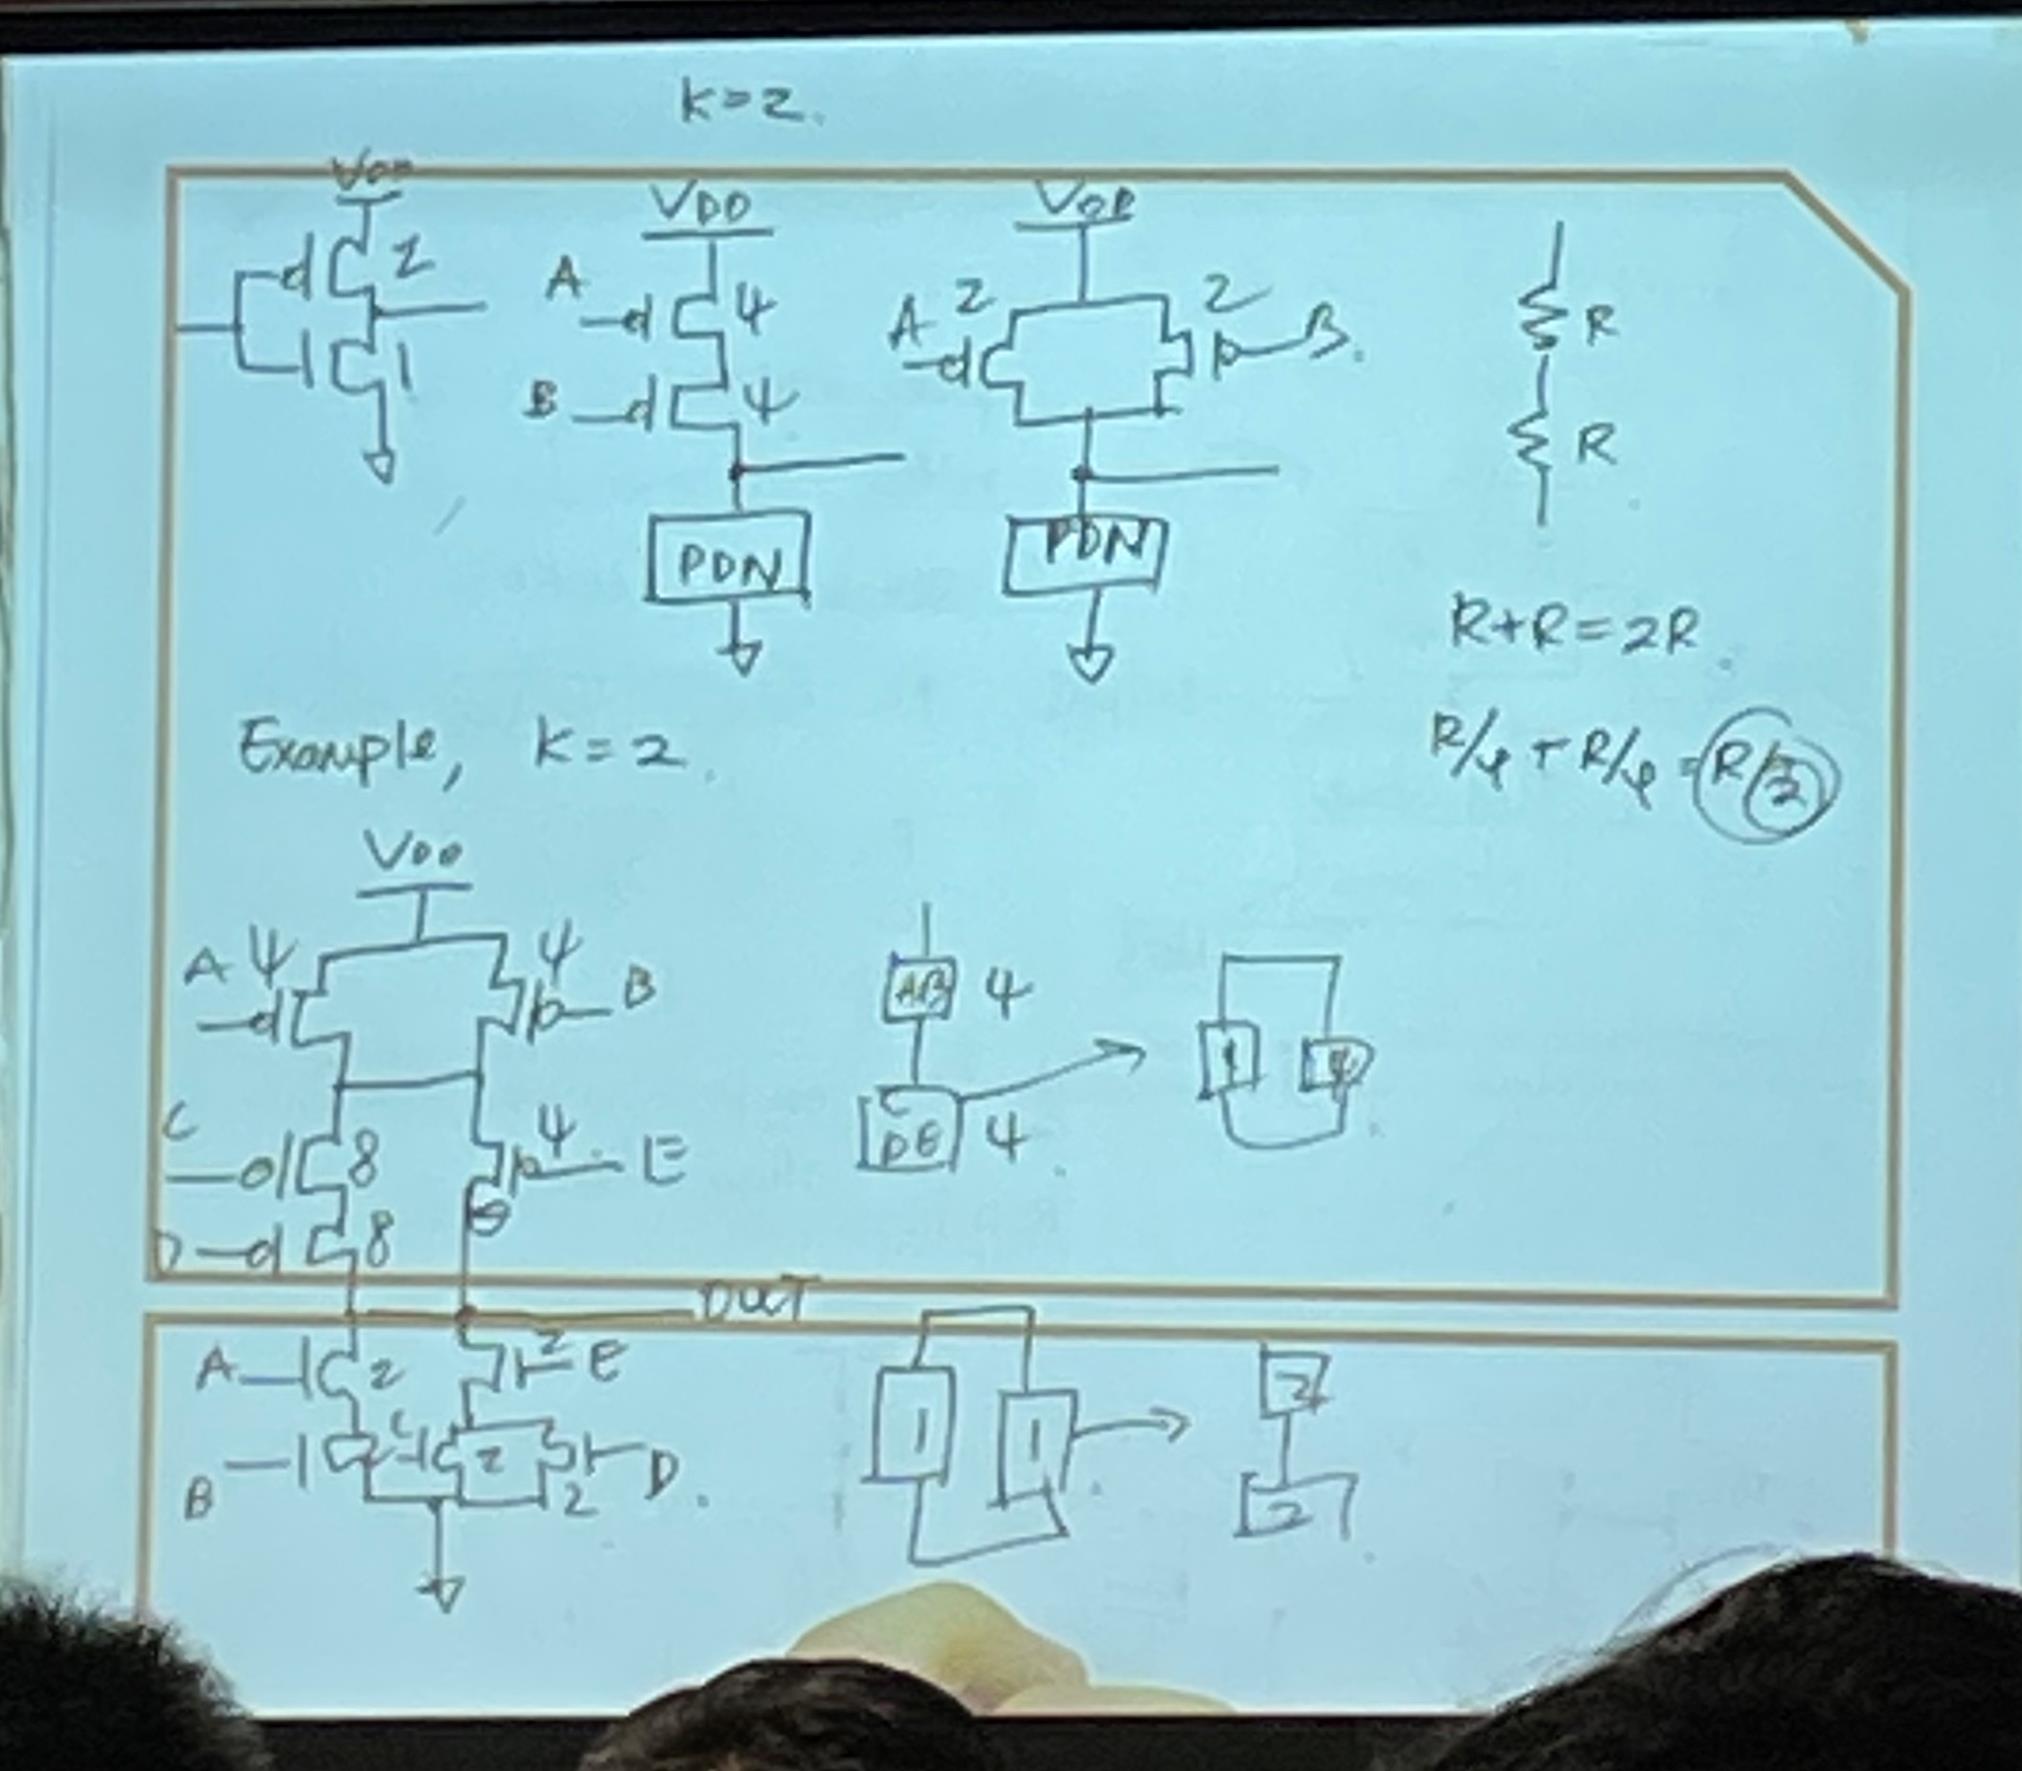 k=2.
VDD
2
1
VDD
A
4
B
4
PDN
VDD
A 2
2
B.
PDN
R
R
R+R=2R
R/4 + R/4 = R/2
Example, k=2.
VDD
A 4
4
B
C
8
4
E
D
8
OUT
A
2
2
E
B
2
C
2
D
2
AB 4
C
DE 4
4
1
1
2
2